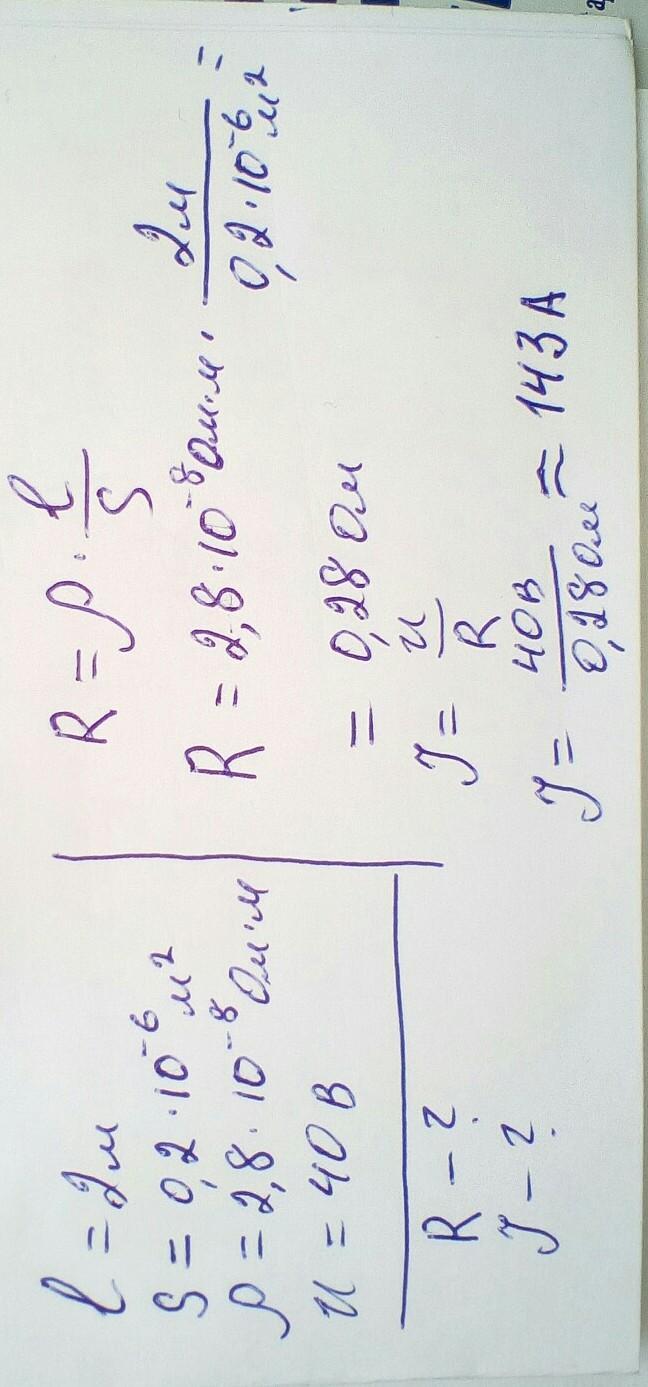 l = 2м
S = 0,2·10⁻⁶ м²
ρ = 2,8·10⁻⁸ Ом·м
U = 40 В
R – ?
J – ?
R = ρ · l/S
R = 2,8·10⁻⁸ Ом·м · 2м/0,2·10⁻⁶ м² =
= 0,28 Ом
J = U/R
J = 40В/0,28 Ом ≈ 143 А